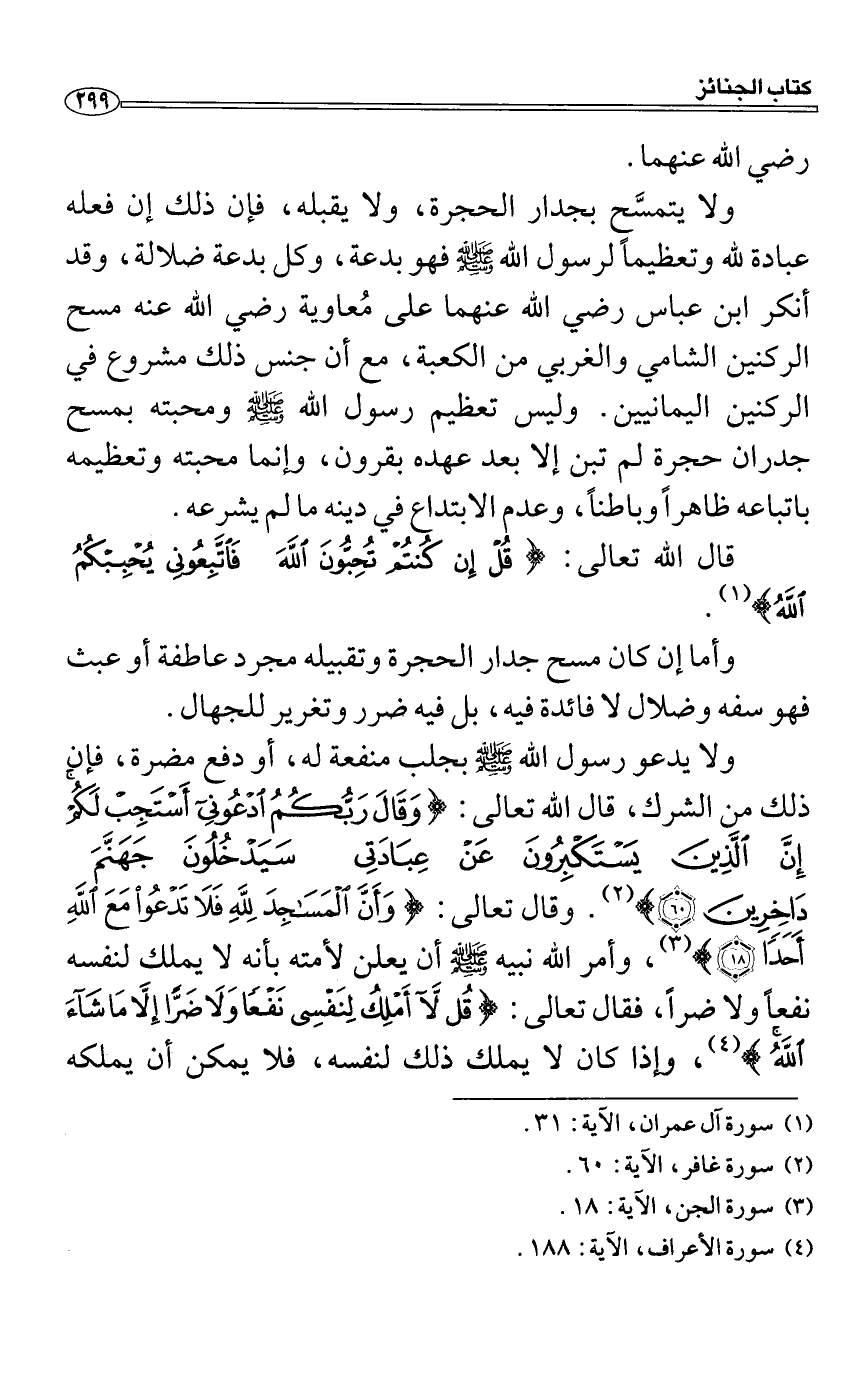 كتاب الجنائز
٢٩٩
رضي الله عنهما .
ولا يتمسَّح بجدار الحجرة، ولا يقبله، فإن ذلك إن فعله
عبادة لله وتعظيماً لرسول الله ﷺ فهو بدعة، وكل بدعة ضلالة، وقد
أنكر ابن عباس رضي الله عنهما على مُعاوية رضي الله عنه مسح
الركنين الشامي والغربي من الكعبة، مع أن جنس ذلك مشروع في
الركنين اليمانيين. وليس تعظيم رسول الله ﷺ ومحبته بمسح
جدران حجرة لم تبن إلا بعد عهده بقرون، وإنما محبته وتعظيمه
باتباعه ظاهراً وباطناً، وعدم الابتداع في دينه ما لم يشرعه .
قال الله تعالى: ﴿ قُلْ إِن كُنتُمْ تُحِبُّونَ ٱللَّهَ فَٱتَّبِعُونِى يُحْبِبْكُمُ
ٱللَّهُ﴾(١) .
وأما إن كان مسح جدار الحجرة وتقبيله مجرد عاطفة أو عبث
فهو سفه وضلال لا فائدة فيه، بل فيه ضرر وتغرير للجهال .
ولا يدعو رسول الله ﷺ بجلب منفعة له، أو دفع مضرة، فإن
ذلك من الشرك، قال الله تعالى: ﴿ وَقَالَ رَبُّكُمُ ٱدْعُونِىٓ أَسْتَجِبْ لَكُمْ ۚ
إِنَّ ٱلَّذِينَ يَسْتَكْبِرُونَ عَنْ عِبَادَتِى سَيَدْخُلُونَ جَهَنَّمَ
دَاخِرِينَ ٦٠﴾(٢) . وقال تعالى: ﴿ وَأَنَّ ٱلْمَسَـٰجِدَ لِلَّهِ فَلَا تَدْعُوا۟ مَعَ ٱللَّهِ
أَحَدًا ١٨ ﴾(٣)، وأمر الله نبيه ﷺ أن يعلن لأمته بأنه لا يملك لنفسه
نفعاً ولا ضراً، فقال تعالى: ﴿ قُل لَّآ أَمْلِكُ لِنَفْسِى نَفْعًا وَلَا ضَرًّا إِلَّا مَا شَآءَ
ٱللَّهُ ۚ ﴾(٤)، وإذا كان لا يملك ذلك لنفسه، فلا يمكن أن يملكه
(١) سورة آل عمران، الآية: ٣١ .
(٢) سورة غافر، الآية: ٦٠ .
(٣) سورة الجن، الآية: ١٨ .
(٤) سورة الأعراف، الآية: ١٨٨ .